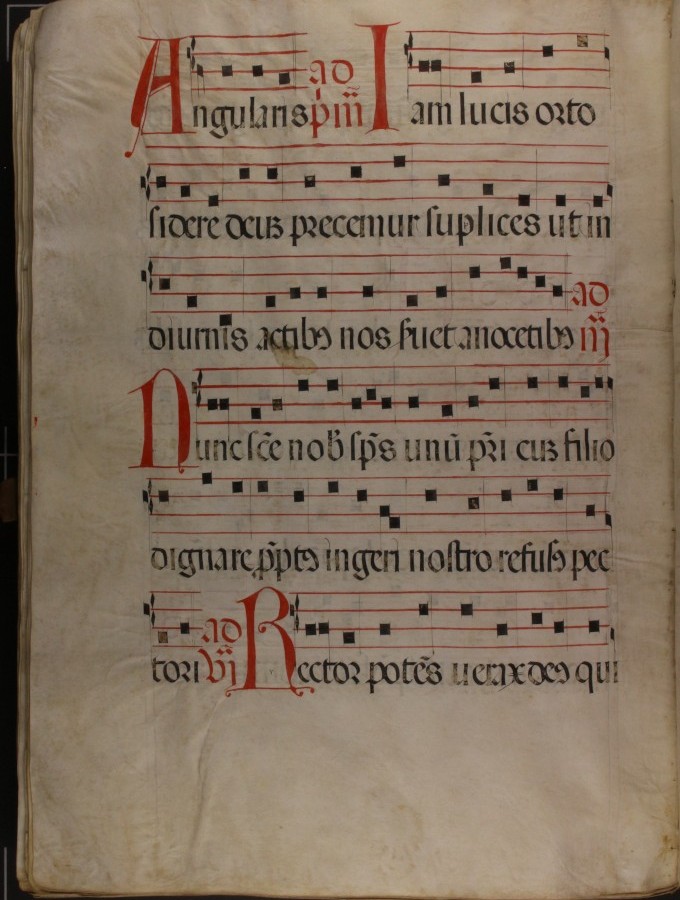 Angularis ad pīm̄ Iam lucis orto
sidere deus precemur suplices ut in
diurnis actibꝯ nos ſuet anocetibꝯ ad iij̄
Nunc sc̄e nob̄ sp̄s unū p̄ri cus filio
dignare p̄ptꝯ ingeri nostro refusꝯ pec
tori ad vi Rector potēs uerax deꝯ qui